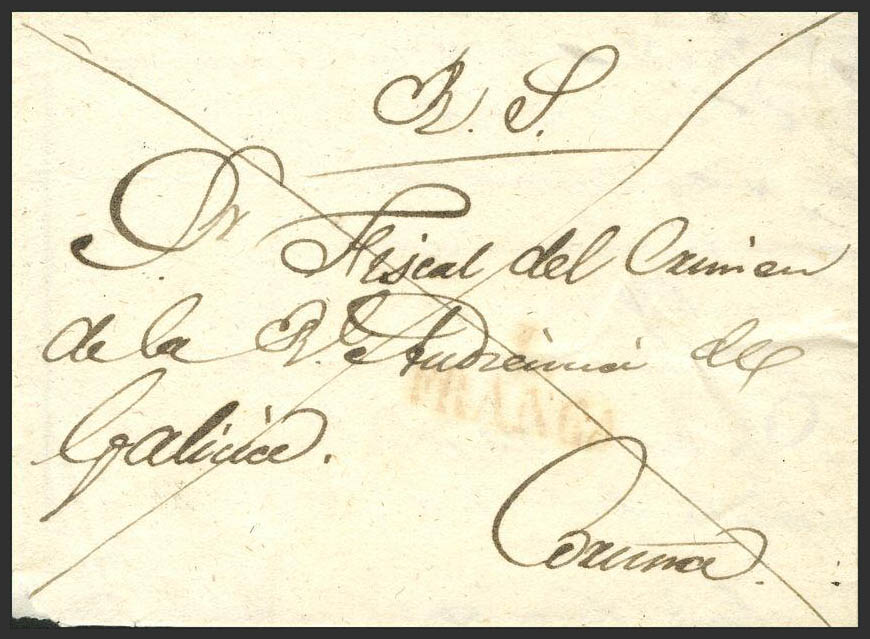 R. S.
Sr Fiscal del Crimen
de la R. Audiencia de
Galicia.
Coruña.